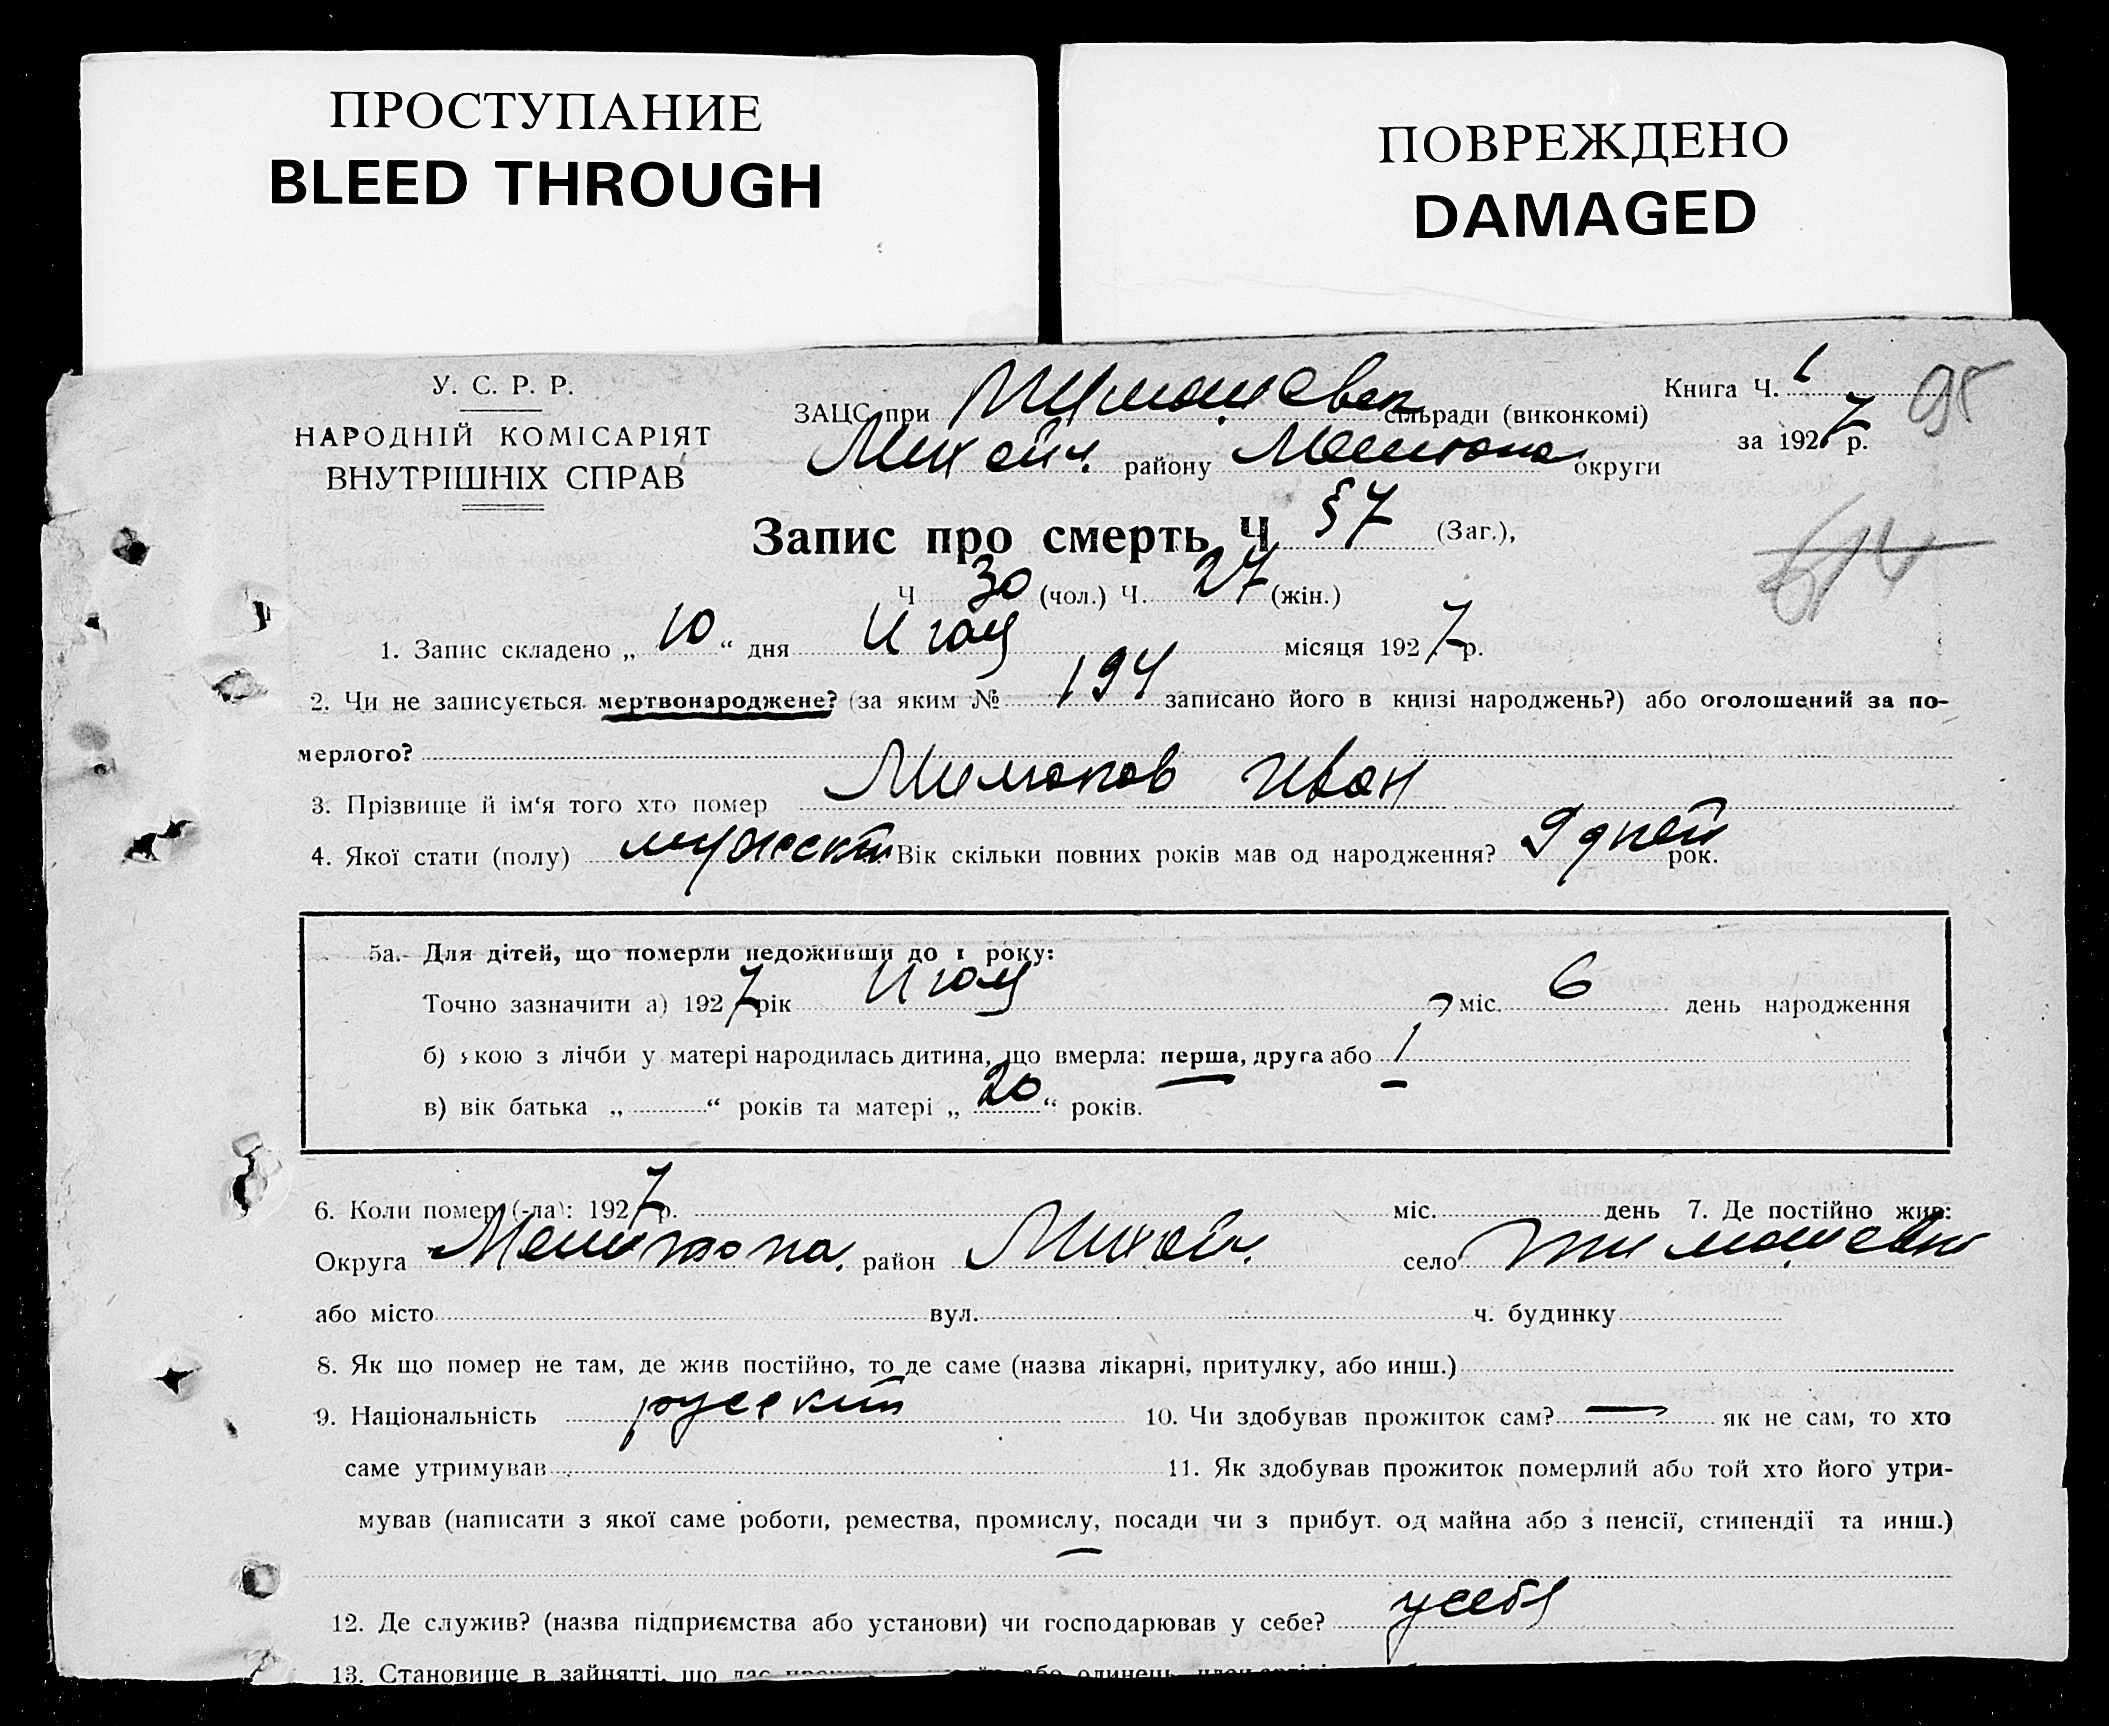 ПРОСТУПАНИЕ
BLEED THROUGH
ПОВРЕЖДЕНО
DAMAGED
У. С. Р. Р.
НАРОДНІЙ КОМІСАРІЯТ
ВНУТРІШНІХ СПРАВ
ЗАЦС при Тимошевск сільради (виконкомі)
Михайл. району Мелитопо округи
Книга Ч.
за 1927 р.
95
Запис про смерть Ч 57 (Заг.),
Ч 30 (чол.) Ч. 27 (жін.)
1. Запис складено „ 10 “ дня Июля місяця 1927 р.
2. Чи не записується мертвонароджене? (за яким № 194 записано його в книзі народжень?) або оголошений за по-
мерлого?
3. Прізвище й ім‘я того хто помер Иван
4. Якої стати (полу) мужскт Вік скільки повних років мав од народження? 9 дней рок.
5а. Для дітей, що померли недоживши до 1 року:
Точно зазначити а) 1927 рік Июля міс. 6 день народження
б) якою з лічби у матері народилась дитина, що вмерла: перша, друга або 1
в) вік батька „ “ років та матері „ 20 “ років.
6. Коли помер (-ла): 1927 р. міс. день 7. Де постійно жив:
Округа Мелитопа. район Михайл. село Тимошевк
або місто вул. ч. будинку
8. Як що помер не там, де жив постійно, то де саме (назва лікарні, притулку, або инш.)
9. Національність русский 10. Чи здобував прожиток сам? — як не сам, то хто
саме утримував 11. Як здобував прожиток померлий або той хто його утри-
мував (написати з якої саме роботи, ремества, промислу, посади чи з прибут. од майна або з пенсії, стипендії та инш.)
—
12. Де служив? (назва підприємства або установи) чи господарював у себе? у себя
13. Становище в зайнятті, що дає